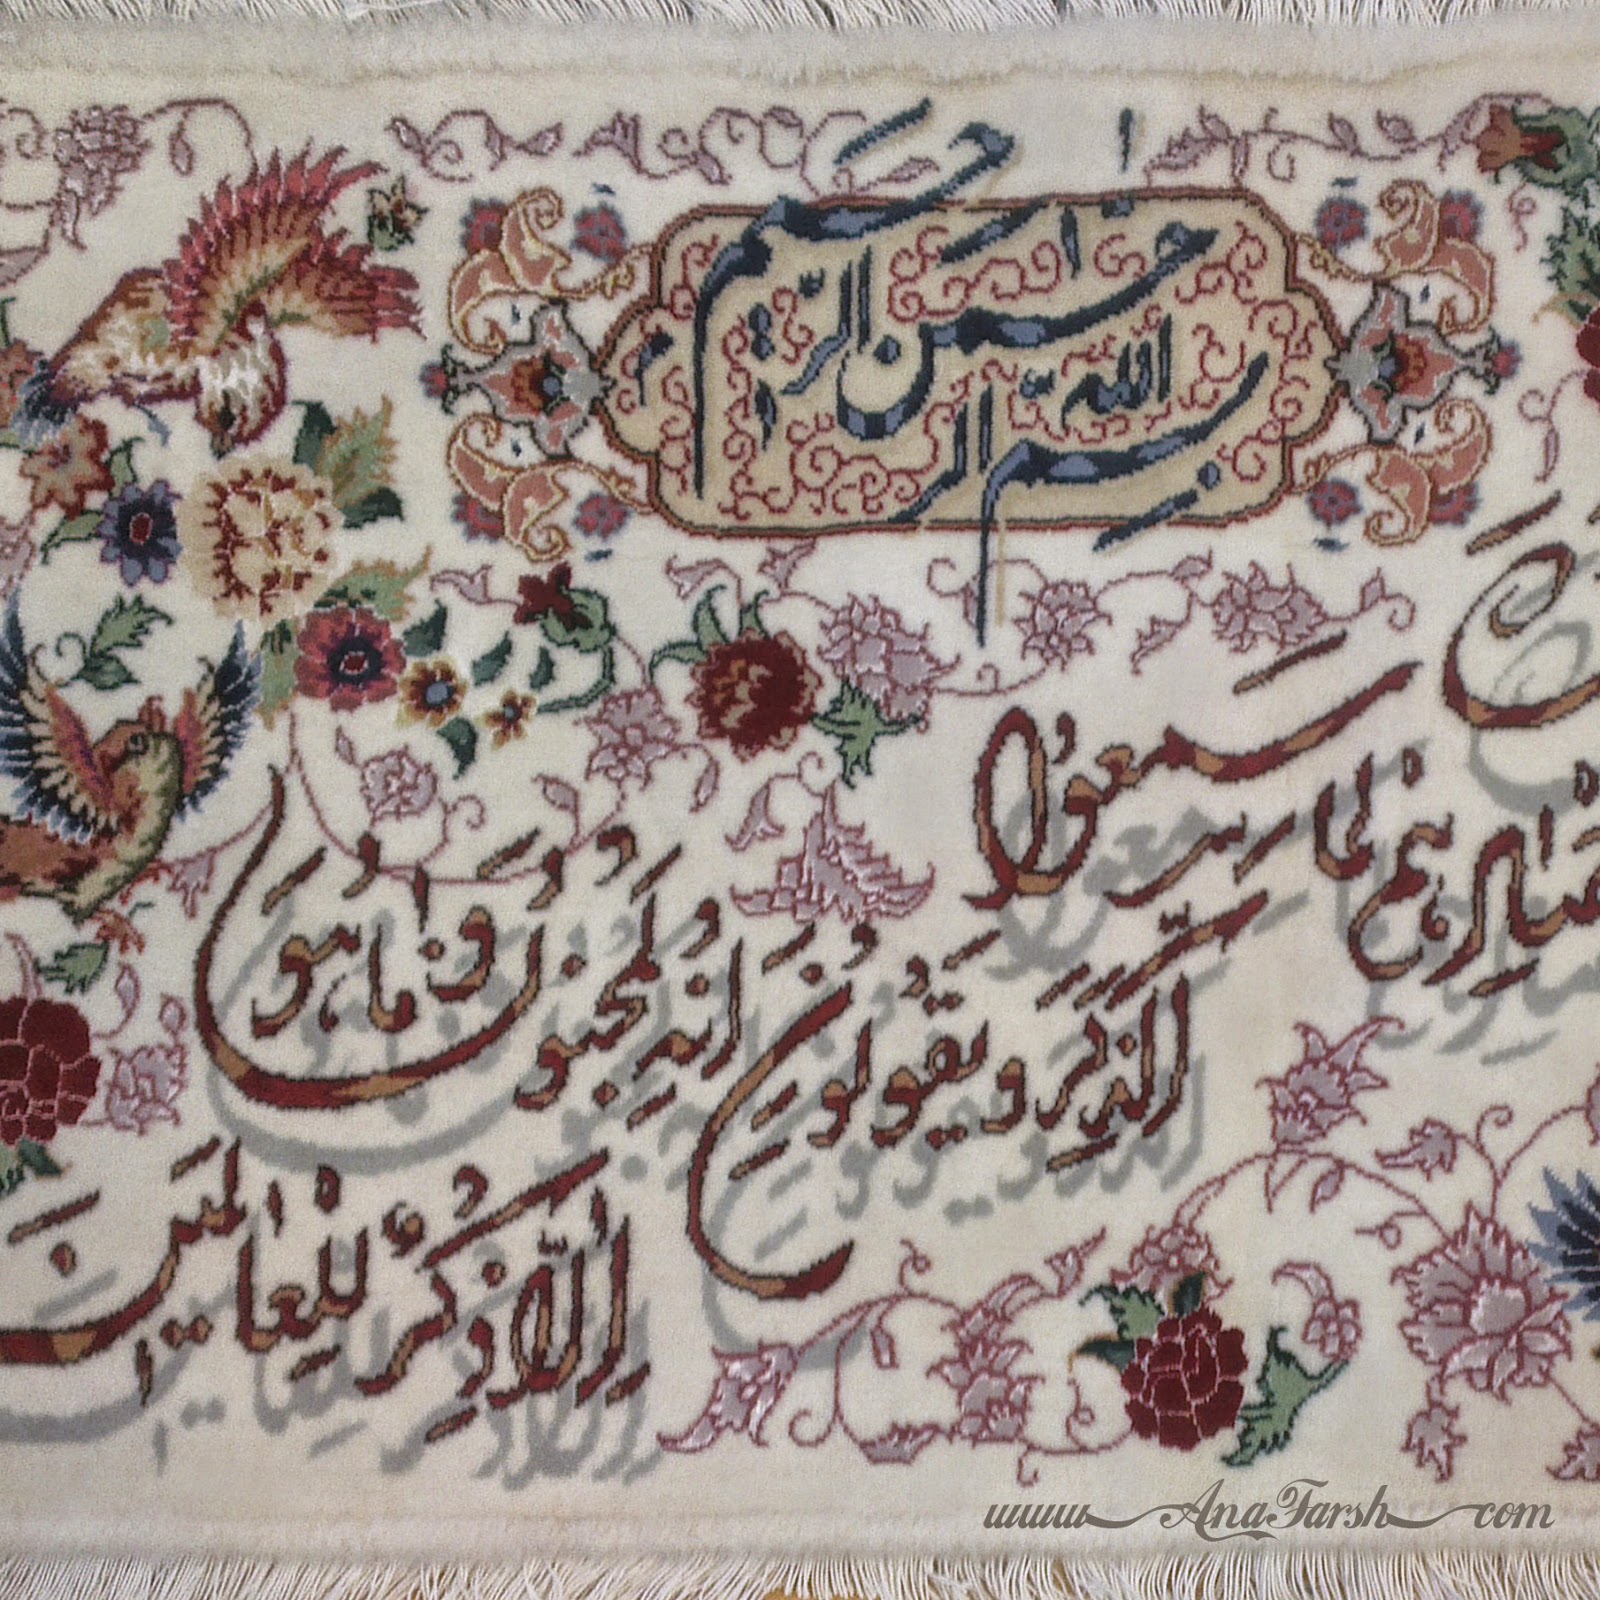 بسم الله الرحمن الرحیم
بابصارهم لما سمعوا
الذكر ويقولون
انه لمجنون وما هو
الا ذكر للعالمين
www.AnaFarsh.com